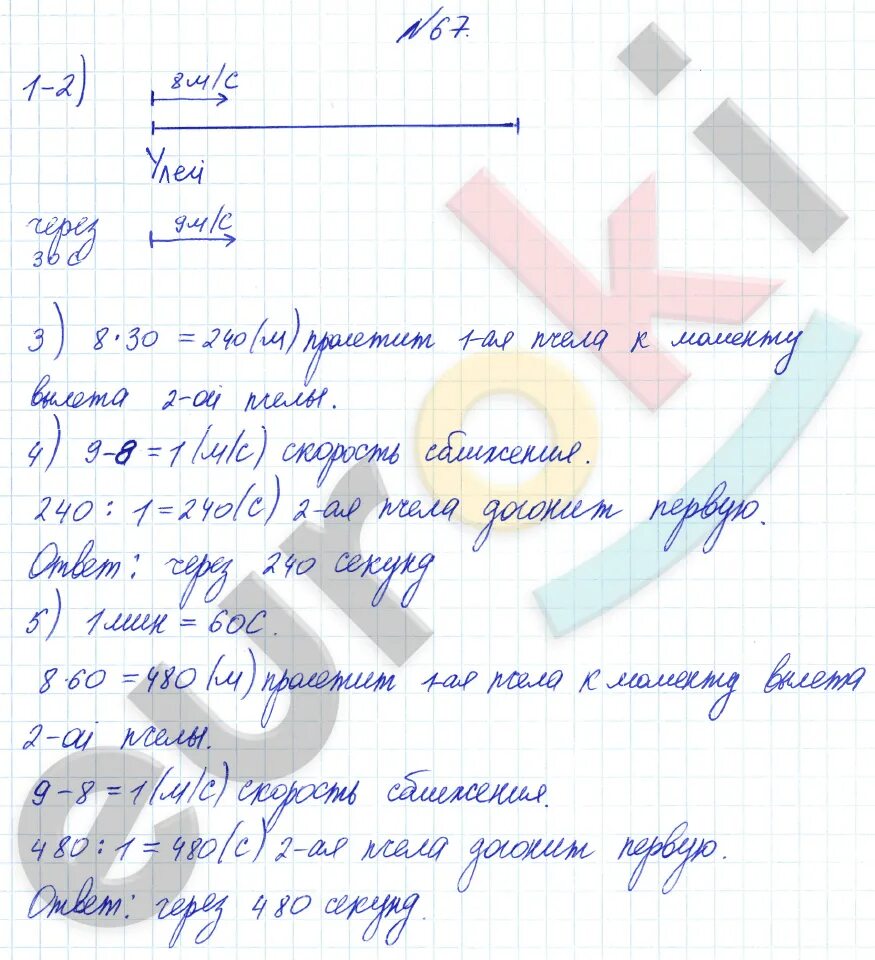 №67.
1-2) 8м/с
Улей
через 9м/с
30с
3) 8·30 = 240(м) пролетит 1-ая пчела к моменту
вылета 2-ой пчелы.
4) 9-8 = 1(м/с) скорость сближения.
240 : 1 = 240(с) 2-ая пчела догонит первую.
Ответ: через 240 секунд
5) 1мин = 60с.
8·60 = 480(м) пролетит 1-ая пчела к моменту вылета
2-ой пчелы.
9-8 = 1(м/с) скорость сближения.
480 : 1 = 480(с) 2-ая пчела догонит первую.
Ответ: через 480 секунд.
euroki